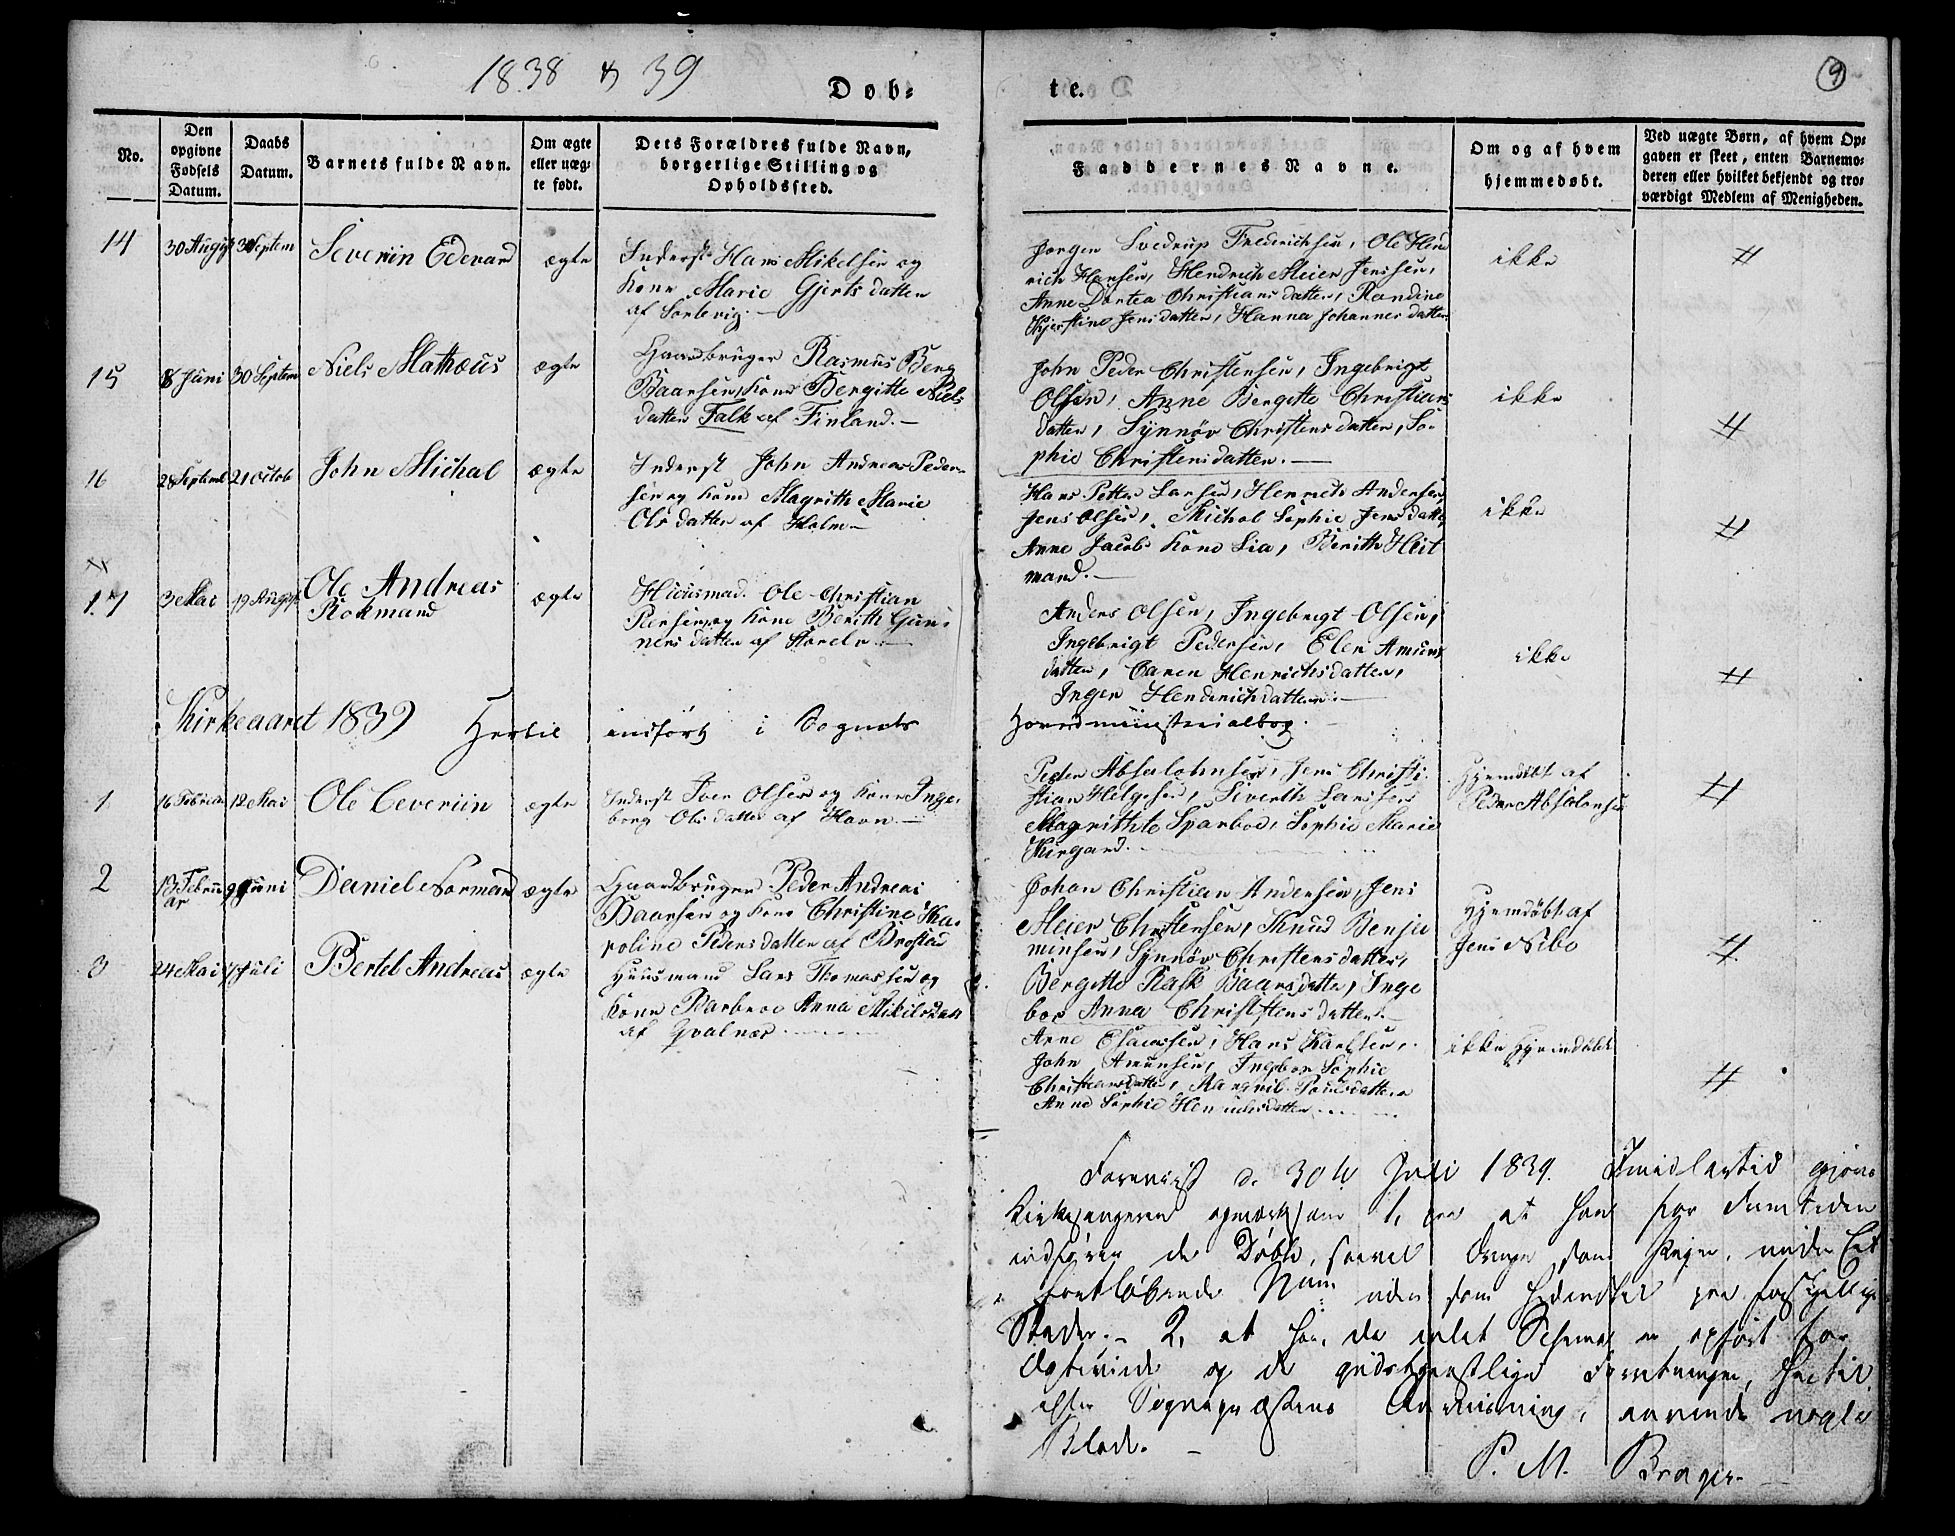 1838 & 39
Døb-
te.
9
No.
Den opgivne Fødsels Datum.
Daabs Datum.
Barnets fulde Navn.
Om ægte eller uægte født.
Dets Forældres fulde Navn, borgerlige Stilling og Opholdssted.
Faddernes Navne.
Om og af hvem hjemmedøbt.
Ved uægte Børn, af hvem Opgaven er skeet, enten Barnemoderen eller hvilket bekjendt og troværdigt Medlem af Menigheden.
14
30 August 30 Septem
Severiin Edevard
ægte
Inderst Hans Mikelsen og
Kone Marie Gjertsdatter
af Sortevig.
Jørgen Svedrup Frederichsen, Ole Hend
rich Hansen, Hendrich Meier Jenssen,
Anne Dortea Christiansdatter, Randine
Kjerstine Jensdatter, Hanna Johannesdatter
ikke
15
8 Juni 30 Septem
Niels Mathæus
ægte
Gaardbruger Rasmus Berg
Baarsen, Kone Bergitte Niels
datter Falk af Finland.
John Peder Christensen, Ingebrigt
Olsen, Anne Bergitte Christians
datter, Synnøv Christensdatter, So-
phie Christensdatter.
ikke
16
28 Septemb 21 Octob
John Michal
ægte
Inderst John Andreas Peder-
sen og Kone Magrith Marie
Olsdatter af Holm
Hans Petter Larsen, Henrich Andersen
Jens Olsen, Michal Sophie Jensdatter
Anne Jacobs Kone Lia, Berith Heit
mand.
ikke
17
3 Mai 19 August
Ole Andreas
Rokmand
ægte
Huusmad. Ole Christian
Peersen og Kone Berith Gun-
nersdatter af
Anders Olsen, Ingebrigt Olsen,
Ingebrigt Pedersen, Elen Amuns
datter, Caren Henrichsdatter,
Inger Henderichdatter.
ikke
Kirkeaaret 1839
Hertil indført i Sognets
Hovedministrialbog.
1
16 Februar 12 Mai
Ole Ceveriin
ægte
Inderst Iver Olsen og Kone Inge-
borg Olsdatter af Havn
Peder Absalohnsen, Jens Christi-
stian Helgesen, Siverth Larssen
Magrithte Sparboe, Sophie Marie
Kirgard.
Hjemdøbt af
Peder Absalonsen
2
13 Februar 9 Juni
Daniel Normand
ægte
Gaardbruger Peder Andreas
Baarsen og Kone Christine Ka-
roline Pedersdatter af Brøstad
Johan Christian Andersen, Jens
Meier Christensen, Knud Benja
minsen, Synnøv Christensdatter,
Bergitte Rask Baarsdatter, Inge
bor Anna Christensdatter.
Hjemdøbt af
Jens Nibe
3
24 Mai 7 Juli
Bertel Andreas
ægte
Huusmand Lars Thomassen og
Kone Barbroe Anna Mikelsdatt
af Qvalnæs
Arne Esaiassen, Hans Karlsen,
John Amunsen, Ingebor Sophie
Christiansdatter, Ragnil Poulsdatter
Anne Sophie Henrichsdatter
ikke Hjemdøbt
Foreviist d. 30te Juli 1839. Imidlertid gjøres
Kirkesangeren opmærksom 1, paa at han for Fremtiden
indfører de Døbte, saavel Drenge som Piger, under Eet
fortløbende Num: uden som hidindtil paa forskjellige
Steder. - 2, at han, da intet Schema er opført for
Ægteviede og de gudstjenstlige Forretninger, hertil
efter Sognepræstens Anviisning, anvende nogle
Blade.
P. M. Brager